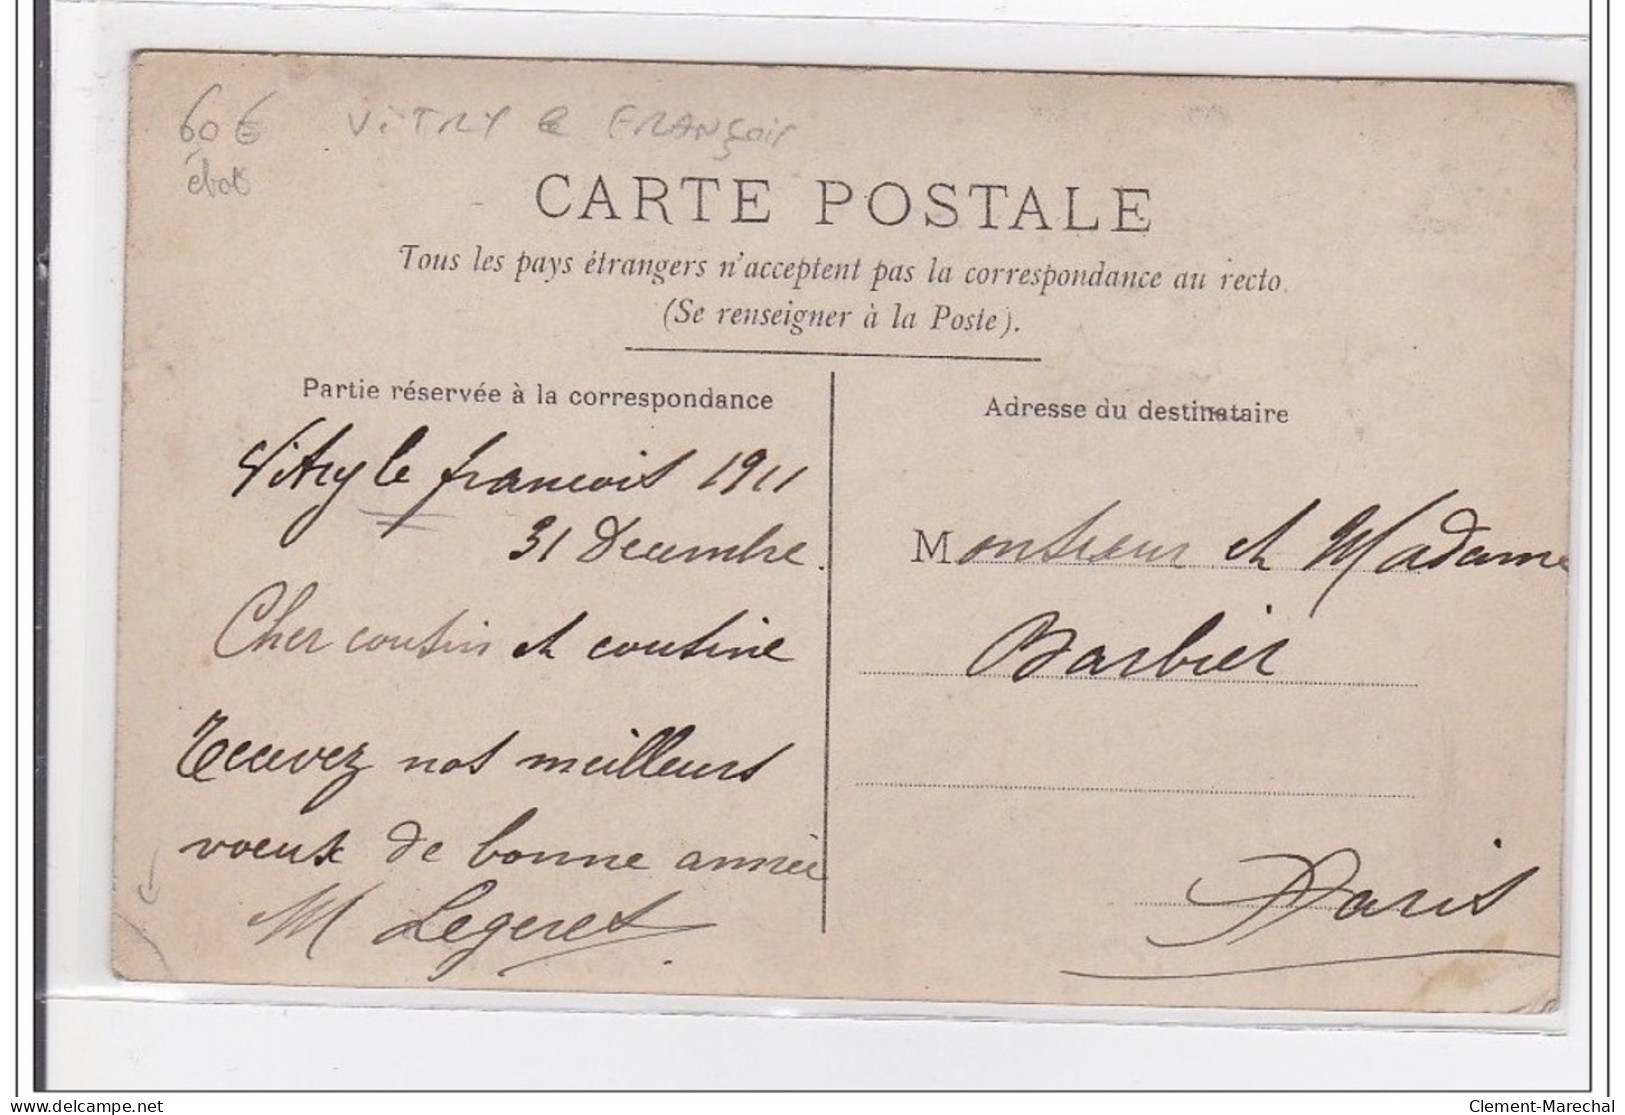 60€ ViTRY le FRANÇois
état
CARTE POSTALE
Tous les pays étrangers n'acceptent pas la correspondance au recto.
(Se renseigner à la Poste).
Partie réservée à la correspondance
Vitry le francois 1911
31 Decembre.
Cher cousin et cousine
Recevez nos meilleurs
voeux de bonne année
M Legeret
Adresse du destinataire
Monsieur et Madame
Barbier
Paris
www.delcampe.net
Clement-Marechal